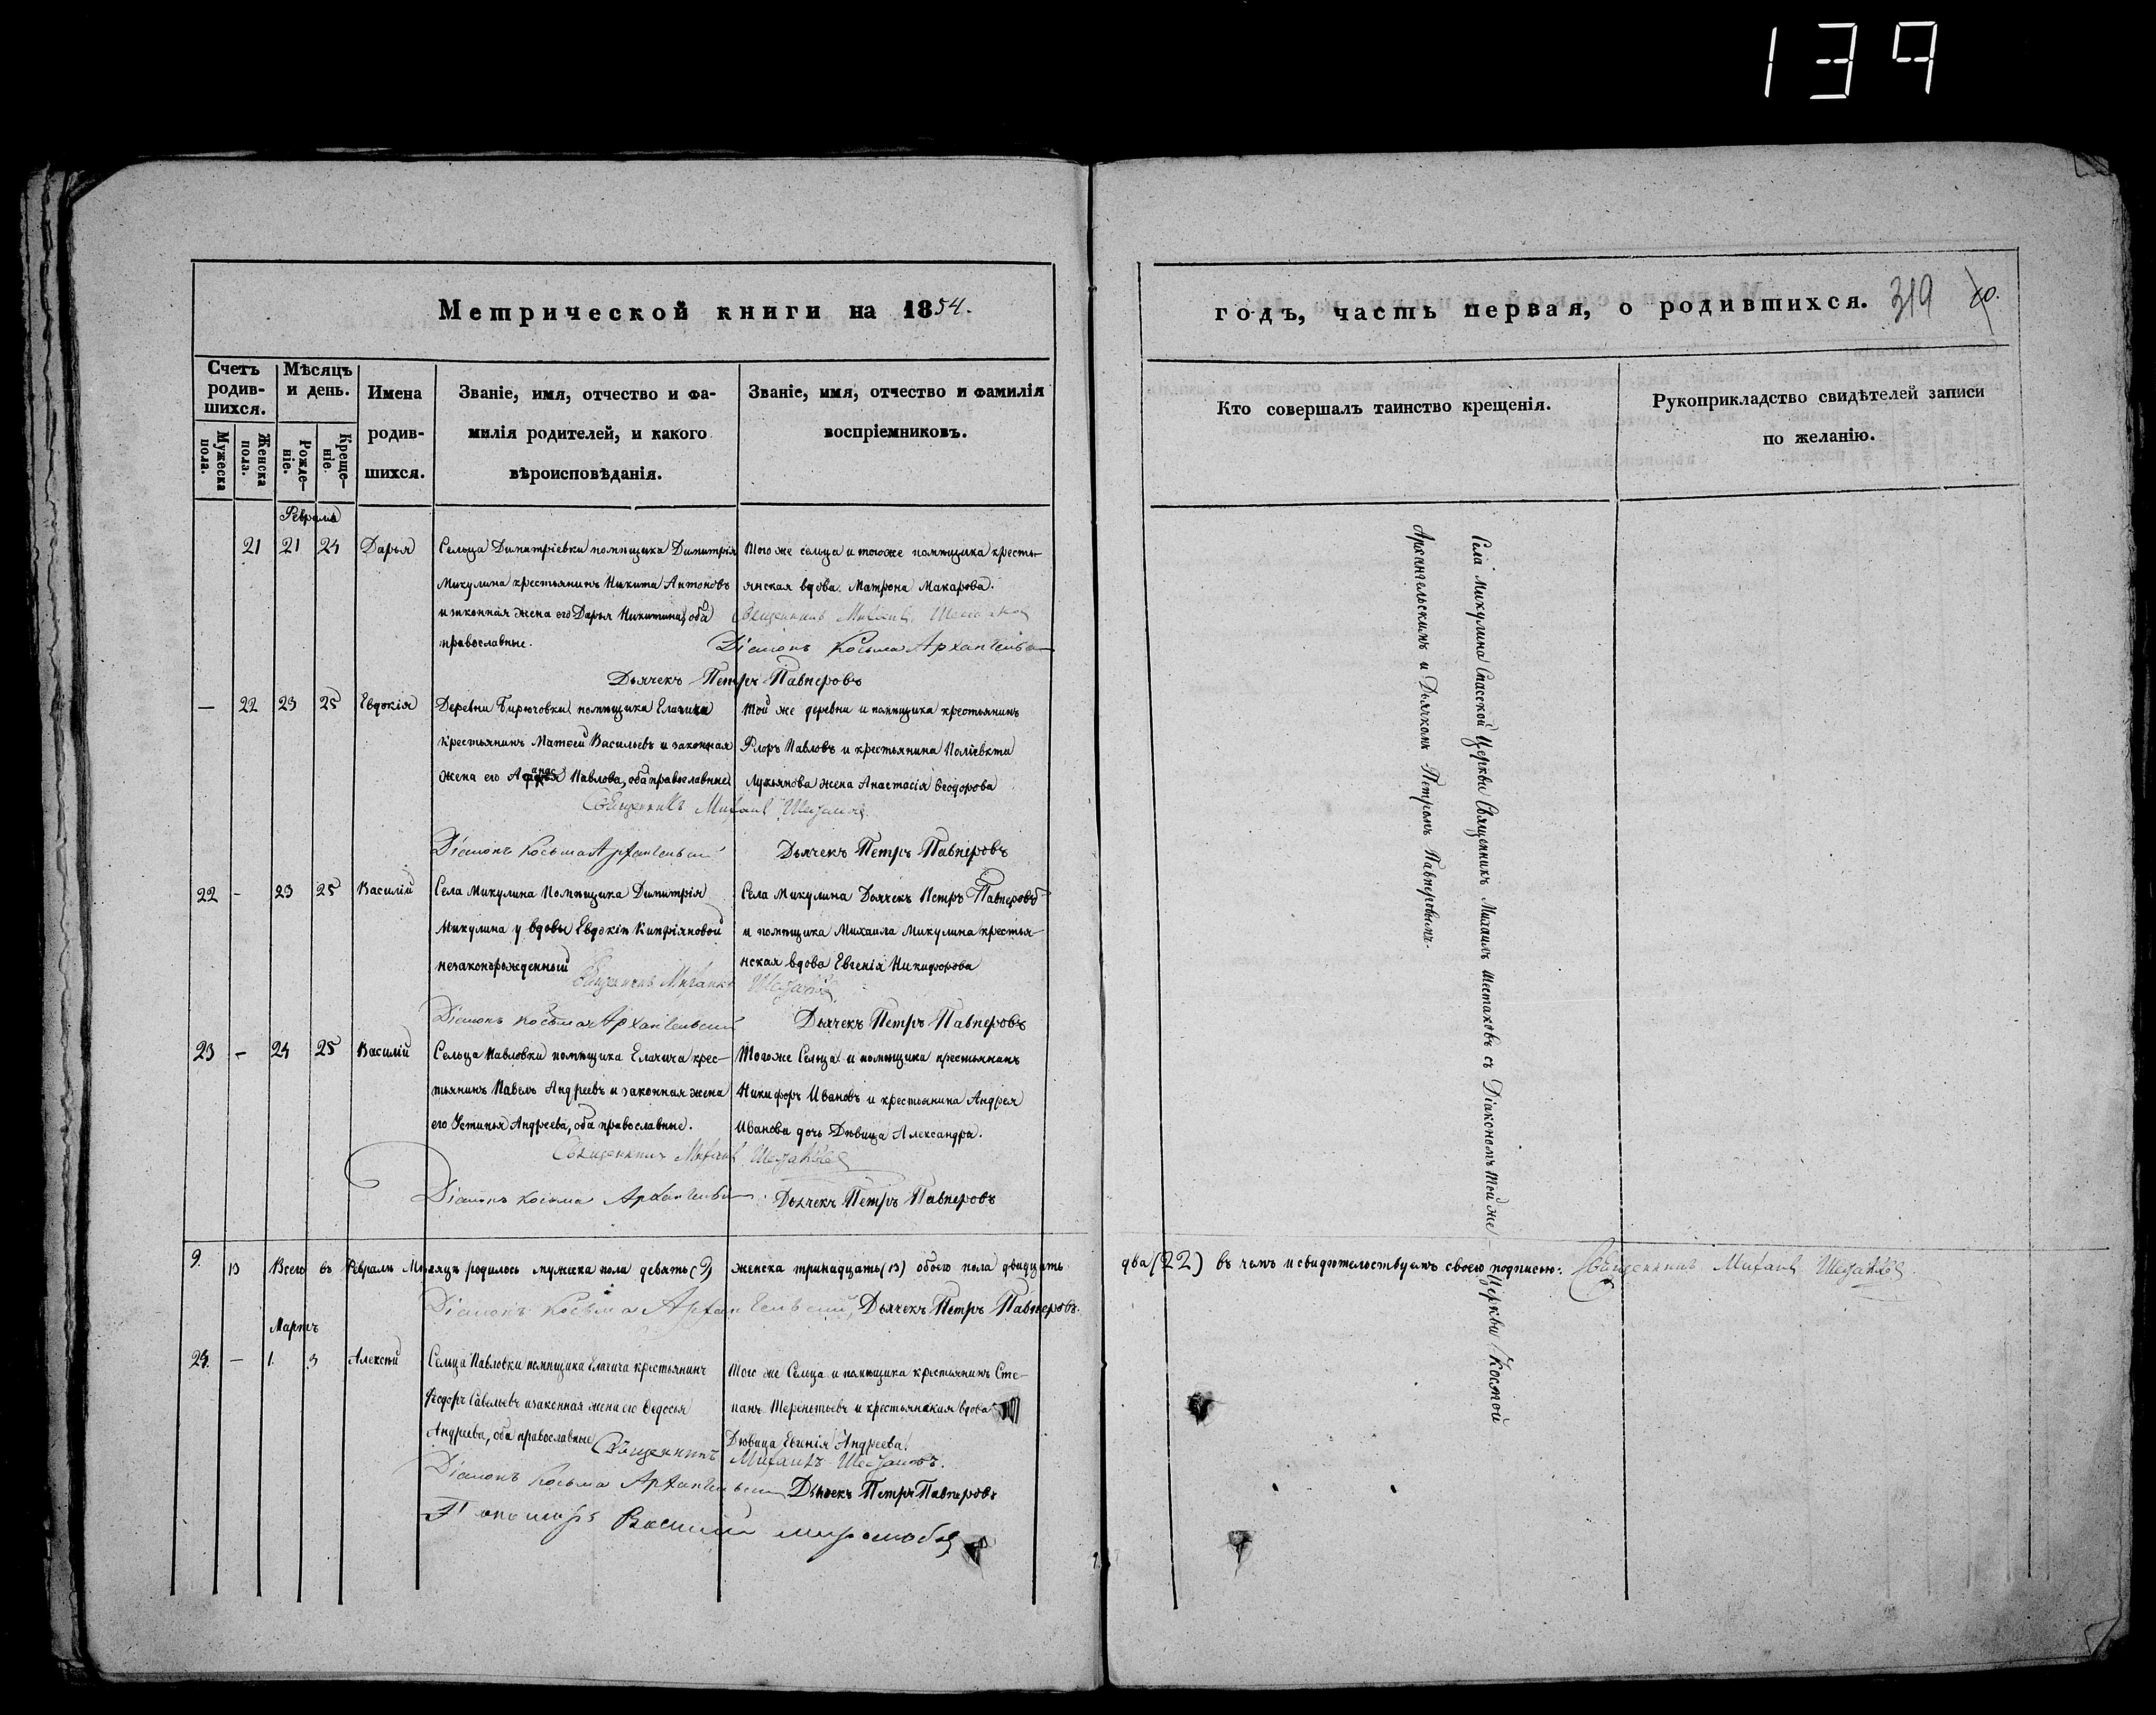 139
Метрической книги на 1854.
Счетъ родив-шихся.
Мужеска пола.
Женска пола.
Мѣсяцъ и день.
Рожде-ніе.
Креще-ніе.
Имена родив-шихся.
Званіе, имя, отчество и фа-
милія родителей, и какого
вѣроисповѣданія.
Званіе, имя, отчество и фамилія
воспріемниковъ.
Февраль
21 21 24 Дарья
Сельца Димитріевки помѣщика Димитрія
Микулина крестьянинъ Никита Антоновъ
и законная жена его Дарья Никитина, оба
православные.
Того же сельца и тогоже помѣщика кресть-
янская вдова Матрона Макарова.
Священникъ Михаилъ Шестаковъ
Діаконъ Косьма Архангельскій
Дьячекъ Петръ Павперовъ
— 22 23 25 Евдокія
Деревни Бирючовки помѣщика Елачича
крестьянинъ Матѳей Васильевъ и законная
жена его Павлова, оба православные
той же деревни и помѣщика крестьянинъ
Флоръ Павловъ и крестьянина Поліевкта
Лукьянова жена Анастасія Ѳеодорова
Священникъ Михаилъ Шестаковъ
Діаконъ Косьма Архангельскій
Дьячекъ Петръ Павперовъ
22 - 23 25 Василій
Села Микулина Помѣщика Димитрія
Микулина у вдовы Евдокіи Кипріяновой
незаконорожденный
Села Микулина Дьячекъ Петръ Павперовъ
и помѣщика Михаила Микулина крестья-
нская вдова Евгенія Никифорова
Священникъ Михаилъ Шестаковъ
Діаконъ Косьма Архангельскій
Дьячекъ Петръ Павперовъ
23 - 24 25 Василій
Сельца Павловки помѣщика Елачича крес-
тьянинъ Павелъ Андреевъ и законная жена
его Устинья Андреева, оба православные.
Тогоже Сельца и помѣщика крестьянинъ
Никифоръ Ивановъ и крестьянина Андрея
Иванова дочь Дѣвица Александра.
Священникъ Михаилъ Шестаковъ
Діаконъ Косьма Архангельскій
Дьячекъ Петръ Павперовъ
9. 13 Всего въ Февралѣ Мѣсяцѣ родилось мужска пола девять (9) женска тринадцать (13) обоего пола двадцать
Діаконъ Косьма Архангельскій, Дьячекъ Петръ Павперовъ.
Мартъ
24. — 1. 3 Алексѣй
Сельца Павловки помѣщика Елачича крестьянинъ
Ѳеодоръ Савельевъ и законная жена его Ѳедосья
Андреева, оба православные
Того же Сельца и помѣщика крестьянинъ Сте-
панъ Терентьевъ и крестьянская вдова
Дѣвица Евгенія Андреева.
Священникъ Михаилъ Шестаковъ.
Діаконъ Косьма Архангельскій Дьячекъ Петръ Павперовъ
Пономарь Василій
годъ, часть первая, о родившихся. 319
Кто совершалъ таинство крещенія.
Рукоприкладство свидѣтелей записи
по желанію.
Села Микулина Спасской Церкви Священникъ Михаилъ Шестаковъ съ Діакономъ той же Церкви Космой
Архангельскимъ и Дьячкомъ Петромъ Павперовымъ.
два (22) въ чемъ и свидѣтельствуемъ своею подписью: Священникъ Михаилъ Шестаковъ